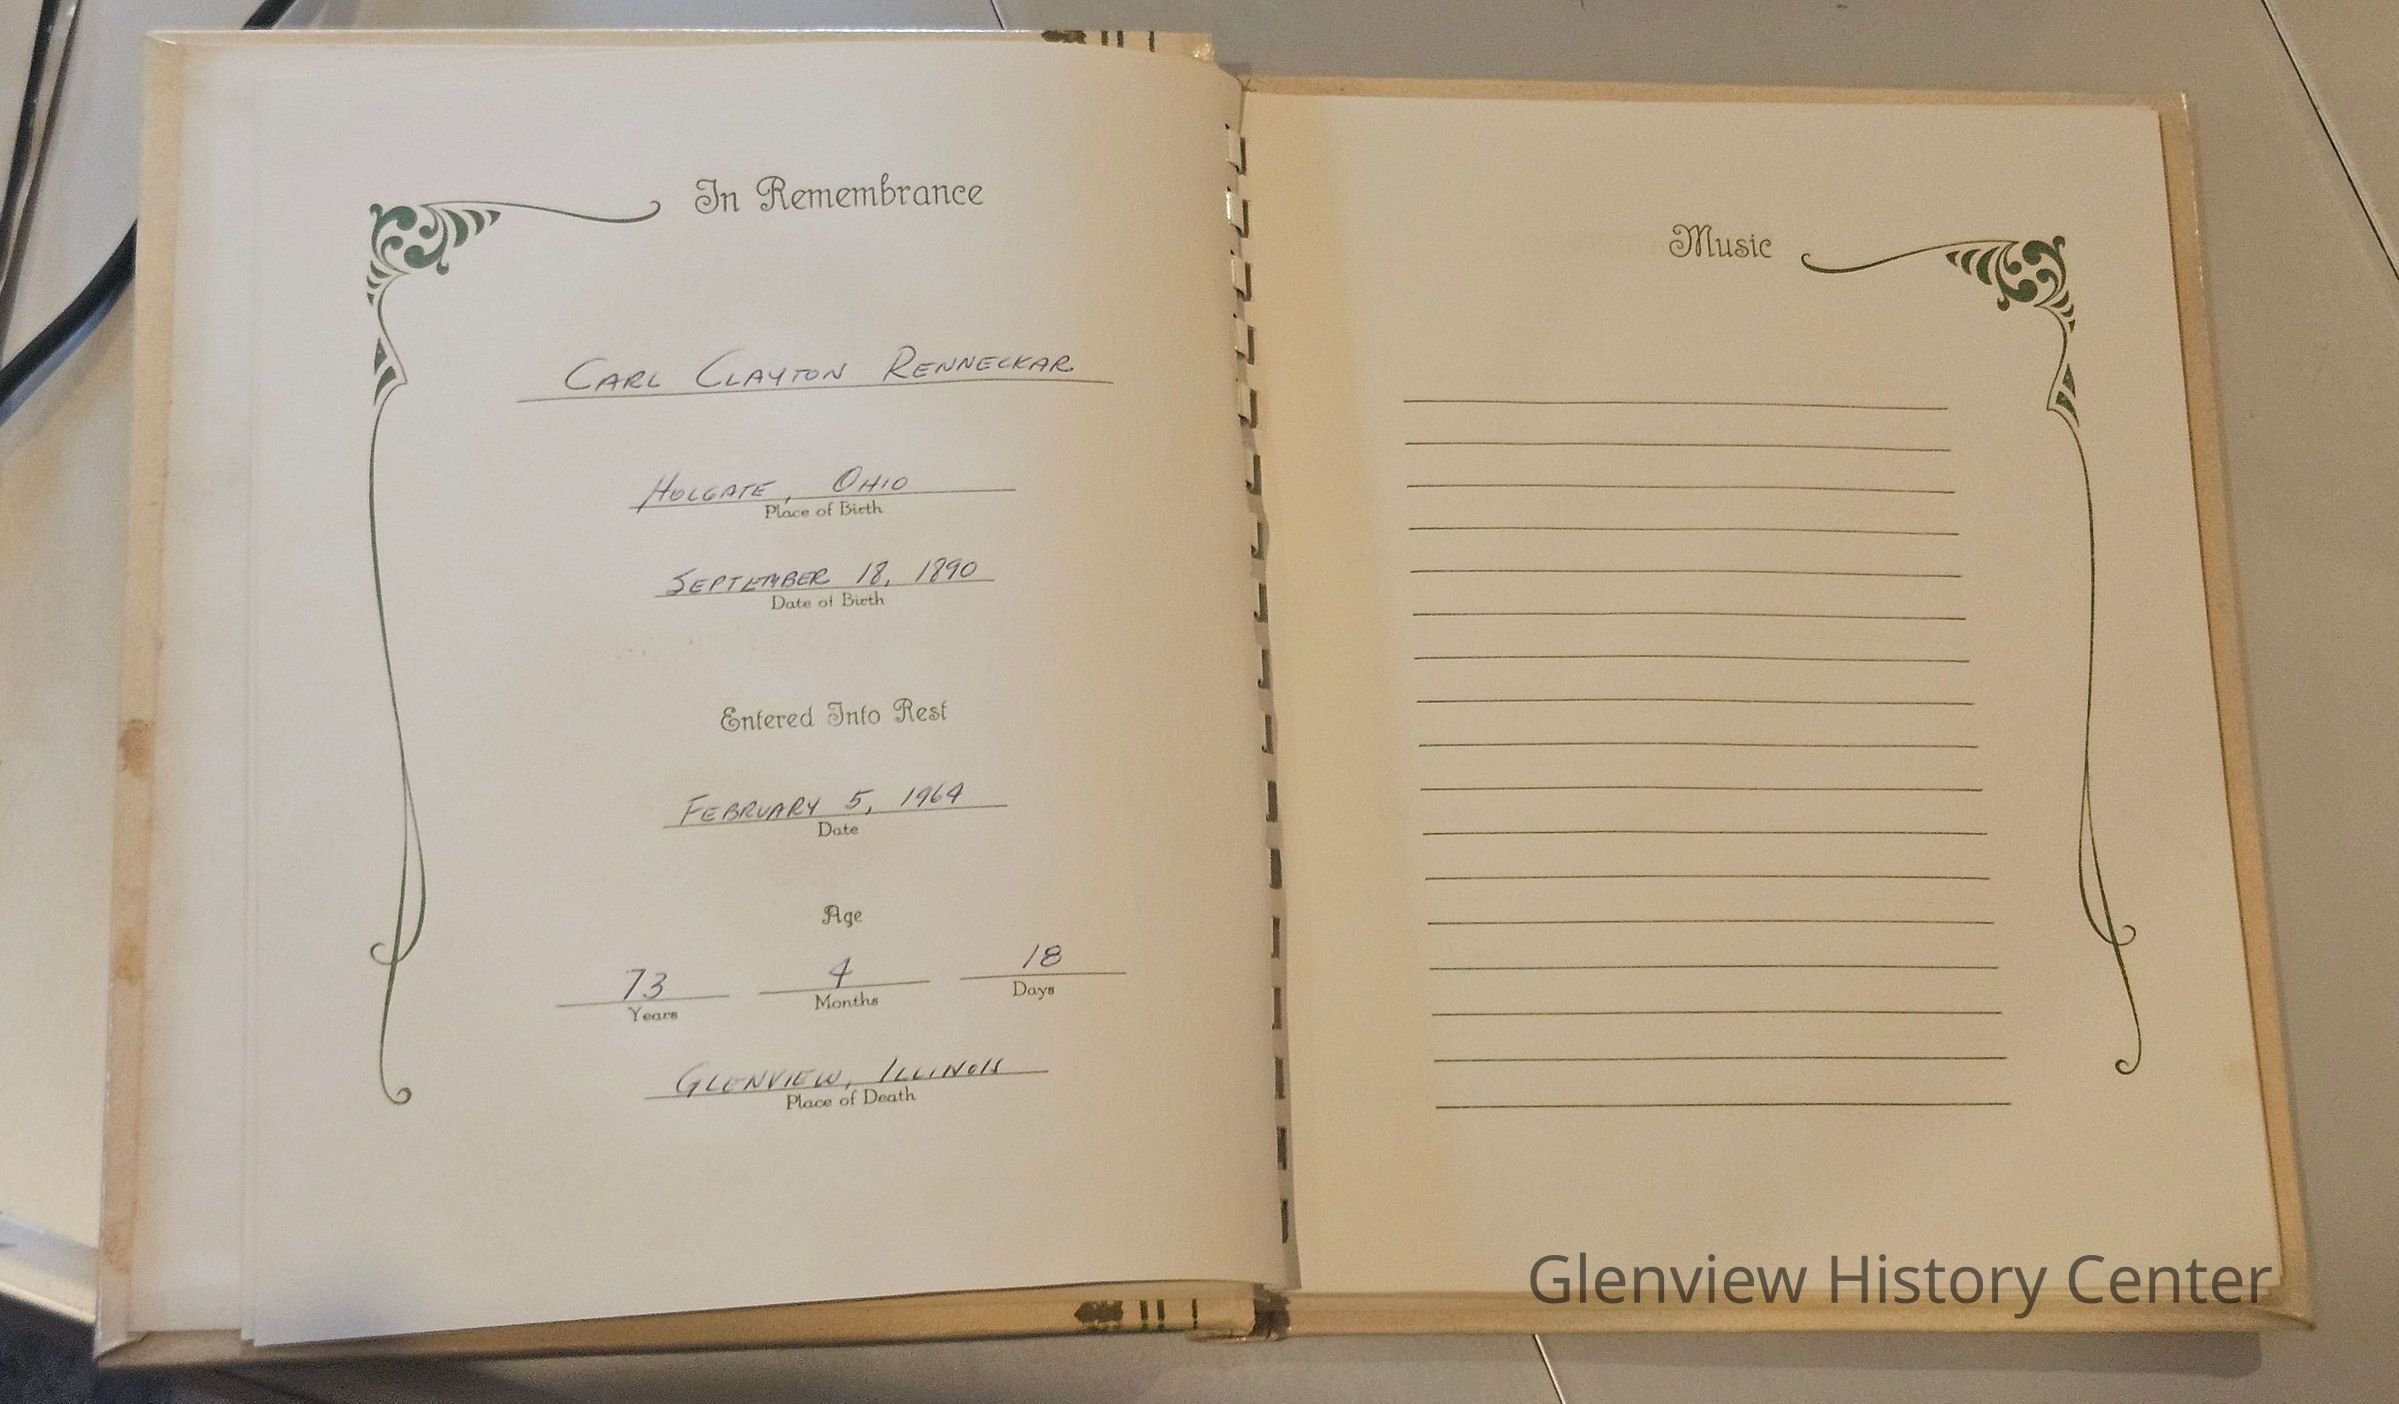 In Remembrance
CARL CLAYTON RENNECKAR
HOLGATE, OHIO
Place of Birth
SEPTEMBER 18, 1890
Date of Birth
Entered Into Rest
FEBRUARY 5, 1964
Date
Age
73 4 18
Years Months Days
GLENVIEW, ILLINOIS
Place of Death
Music
Glenview History Center